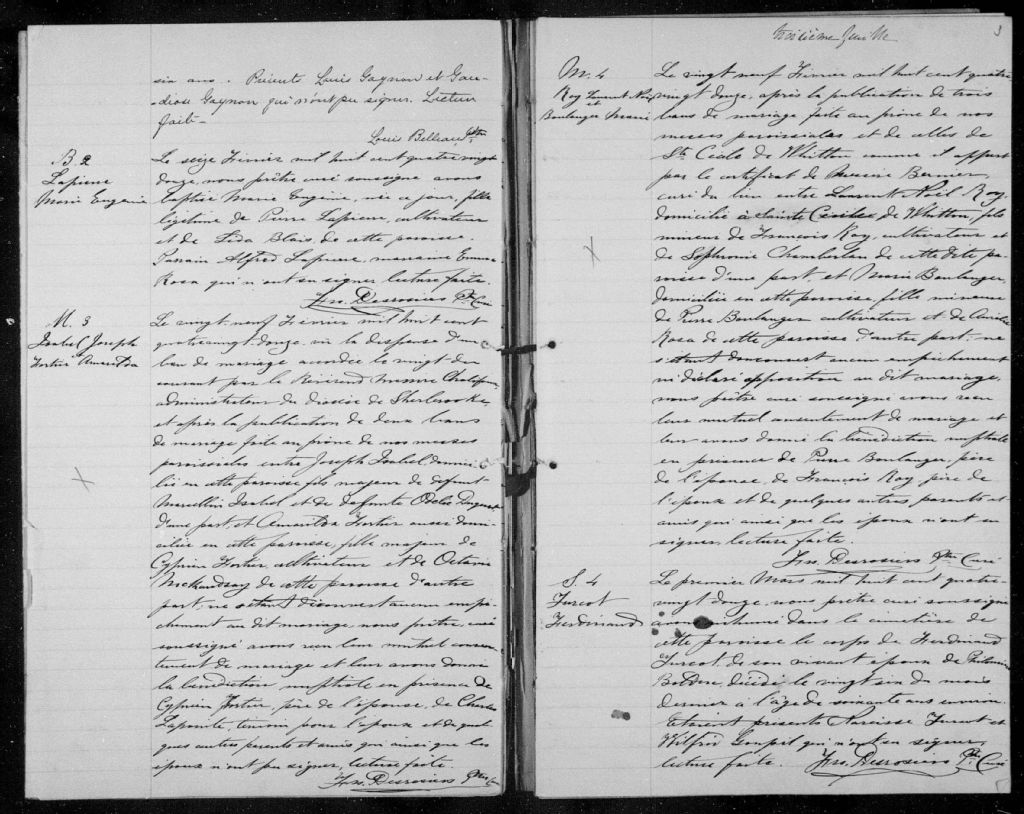 six ans. Présents Louis Gagnon et Gau-
diose Gagnon qui n'ont pu signer. Lecture
faite -
Louis Ptre
B. 2
Lapierre
Marie Eugénie
Le seize Février mil huit cent quatre vingt
douze, nous prêtre curé soussigné avons
baptisé Marie Eugénie, née ce jour, fille
légitime de Pierre Lapierre, cultivateur
et de Lida Blais, de cette paroisse.
Parrain Alfred Lapierre, marraine Emma
Rosa qui n'ont su signer, lecture faite.
Jos. Desrosiers Ptre Curé
M. 3
Isabel Joseph
Fortier Amarilda
Le vingt-neuf Février mil huit cent
quatre vingt-douze, vu la dispense d'un
ban de mariage accordée le vingt du
courant par le Révérend Messire Chalifoux,
administrateur du diocèse de Sherbrooke,
et après la publication de deux bans
de mariage faite au prône de nos messes
paroissiales entre Joseph Isabel, domici-
lié en cette paroisse fils majeur de défunt
Marcellin Isabel et de défunte Odélie
d'une part, et Amarilda Fortier aussi domi-
ciliée en cette paroisse, fille majeure de
Cyprien Fortier, cultivateur et de Octavie
de cette paroisse d'autre
part; ne s'étant découvert aucun empê-
chement au dit mariage, nous prêtre, curé
soussigné avons reçu leur mutuel consen-
tement de mariage et leur avons donné
la bénédiction nuptiale en présence de
Cyprien Fortier, père de l'épouse, de Charles
Lapointe, témoin pour l'époux et de quel-
ques autres parents et amis qui ainsi que les
époux n'ont pu signer, lecture faite.
Jos. Desrosiers Ptre Curé
troisième feuille
3
M. 4
Roy Laurent Noël
et
Boulanger Marie
Le vingt neuf Février mil huit cent quatre
vingt douze, après la publication de trois
bans de mariage faite au prône de nos
messes paroissiales et de celles de
Ste Cécile de Whitton comme il appert
par le certificat de Messire Bernier,
curé du lieu entre Laurent Noël Roy,
domicilié à Sainte Cécile de Whitton, fils
mineur de François Roy, cultivateur et
de Sophronie Chamberlan de cette dite pa-
roisse d'une part, et Marie Boulanger,
domiciliée en cette paroisse, fille mineure
de Pierre Boulanger cultivateur et de
Rosa de cette paroisse d'autre part; ne
s'étant découvert aucun empêchement
ni déclaré opposition au dit mariage,
nous prêtre curé soussigné avons reçu
leur mutuel consentement de mariage et
leur avons donné la bénédiction nuptiale
en présence de Pierre Boulanger, père
de l'épouse, de François Roy, père de
l'époux et de quelques autres parents et
amis qui ainsi que les époux n'ont su
signer, lecture faite.
Jos. Desrosiers Ptre Curé
S. 4
Turcot
Ferdinand
Le premier Mars mil huit cent quatre-
vingt douze, nous prêtre curé soussigné
avons inhumé dans le cimetière de
cette paroisse le corps de Ferdinand
Turcot, de son vivant époux de Philomène
décédé le vingt six du mois
dernier à l'âge de soixante ans environ.
Étaient présents Narcisse Turcot et
Wilfrid Goupil qui n'ont su signer,
lecture faite.
Jos. Desrosiers Ptre Curé